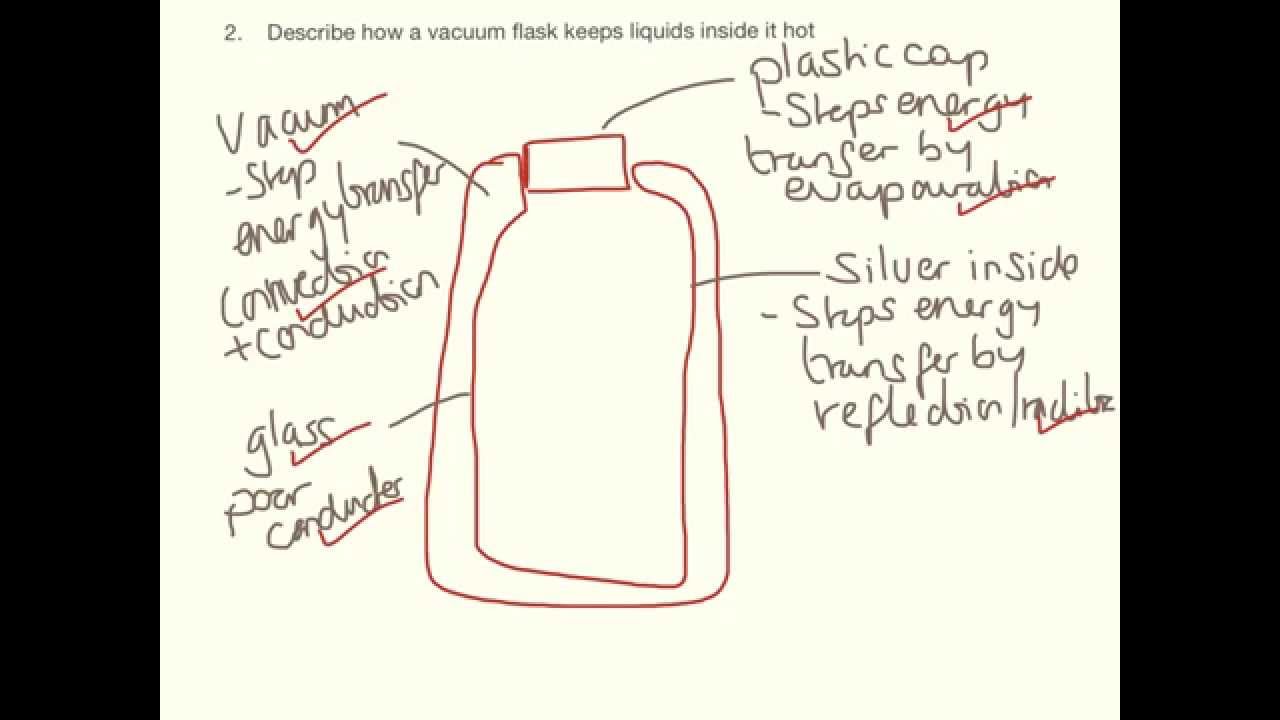 2. Describe how a vacuum flask keeps liquids inside it hot
Vacuum
- Stop
energy transfer
convection
+ conduction
glass
poor
conductor
plastic cap
- Stops energy
transfer by
evapouration
Silver inside
- Stops energy
transfer by
reflection/